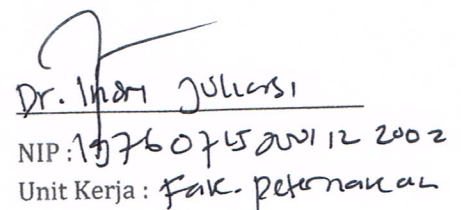 Dr. Indri Juliarsi
NIP : 19760715 200112 2002
Unit Kerja : Fak. Peternakan